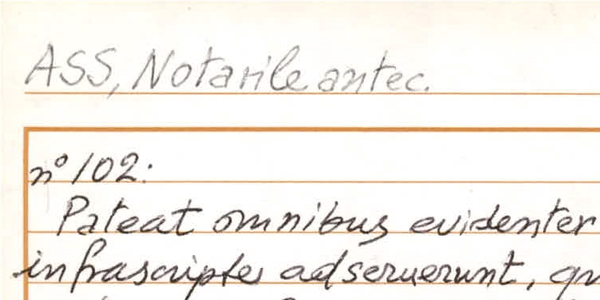 ASS, Notarile antec.
n° 102:
Pateat omnibus evidenter
infrascriptes adseruerunt, qu